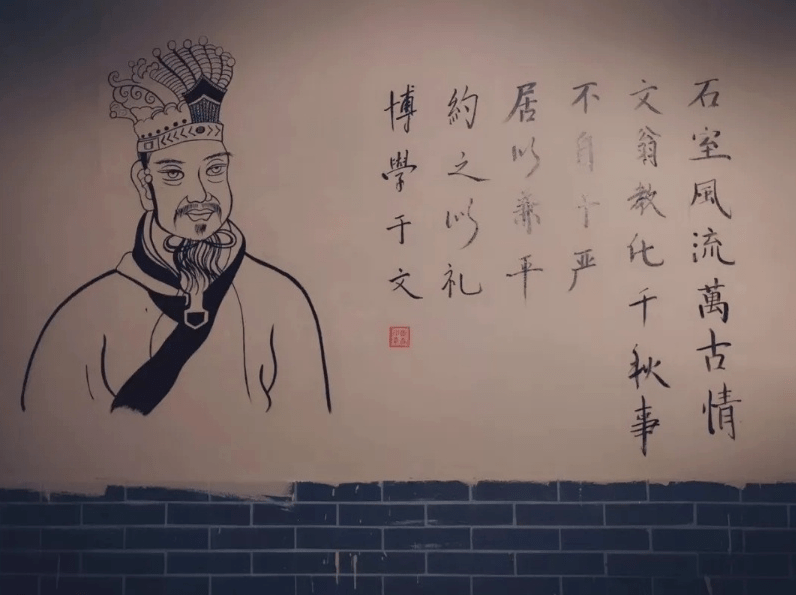 石室風流萬古情
文翁教化千秋事
不自严
居以平
約之以礼
博學于文